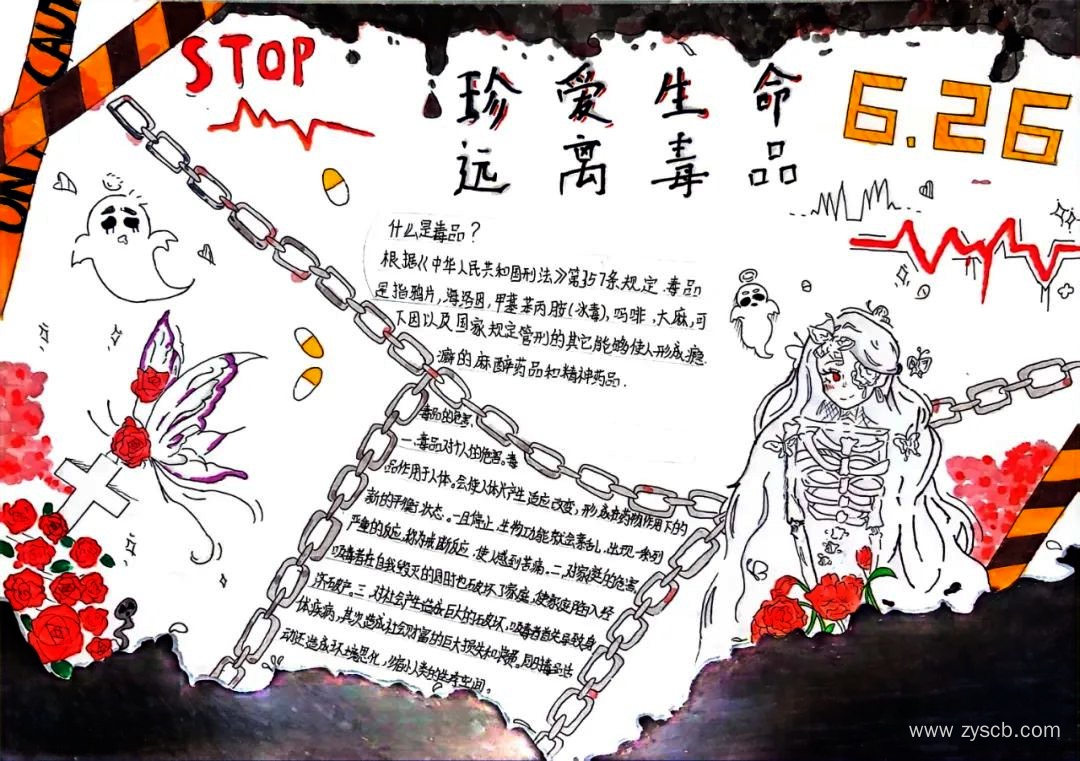 STOP
珍爱生命
远离毒品
6.26
什么是毒品？
根据《中华人民共和国刑法》第357条规定.毒品
是指鸦片,海洛因,甲基苯丙胺(冰毒),吗啡,大麻,可
卡因以及国家规定管制的其它能够使人形成瘾
癖的麻醉药品和精神药品.
毒品的危害.
一.毒品对个人的危害。毒
品作用于人体。会使人体产生适应改变,形成在药物作用下的
新的平衡状态。一旦停止,生物功能就会紊乱,出现一系列
严重的反应,称为戒断反应,使人感到苦痛。二.对家庭的危害,
吸毒者在自我毁灭的同时也破坏了家庭,使家庭陷入经
济破产。三.对社会产生造成巨大的破坏,吸毒者首先导致身
体疾病,其次造成社会财富的巨大损失和浪费。同时毒品活
动还造成环境恶化,缩小人类的生存空间。
www.zyscb.com